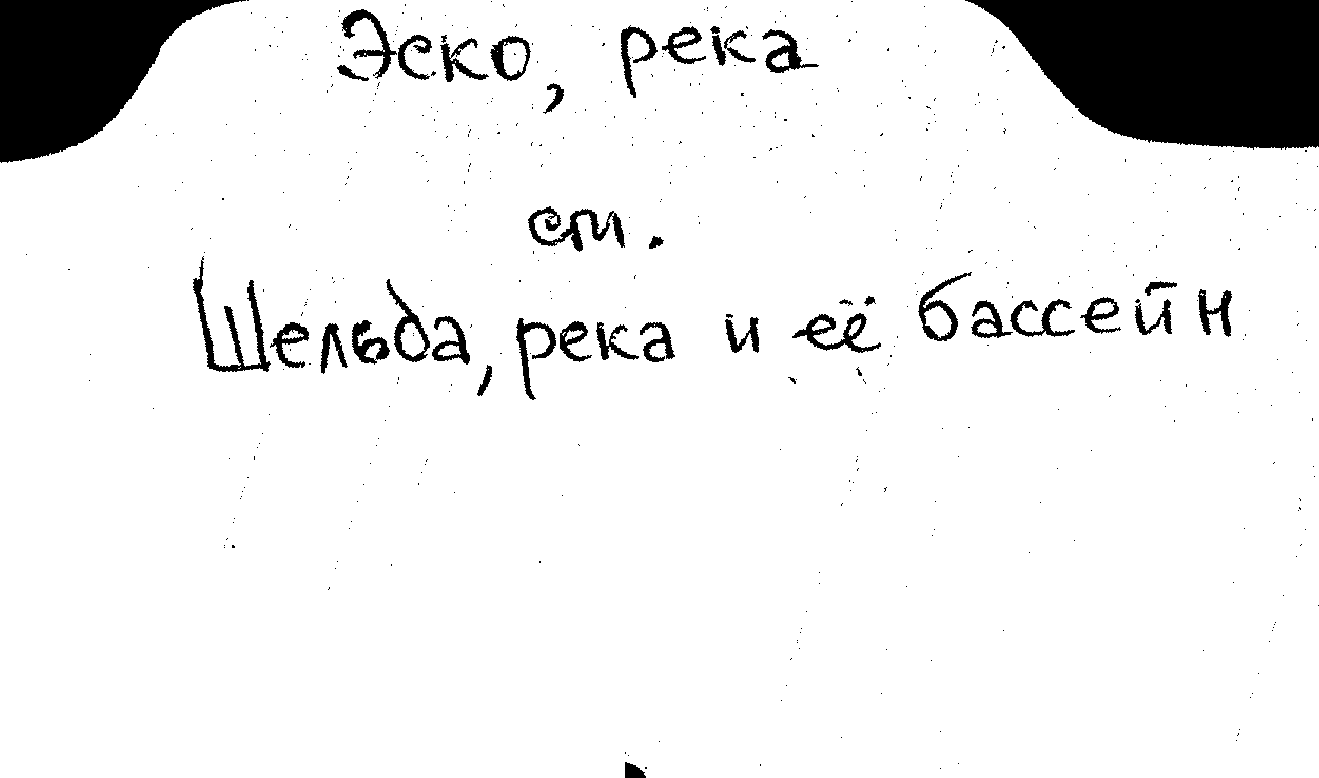 Эско, река
см.
Шельда, река и её бассейн